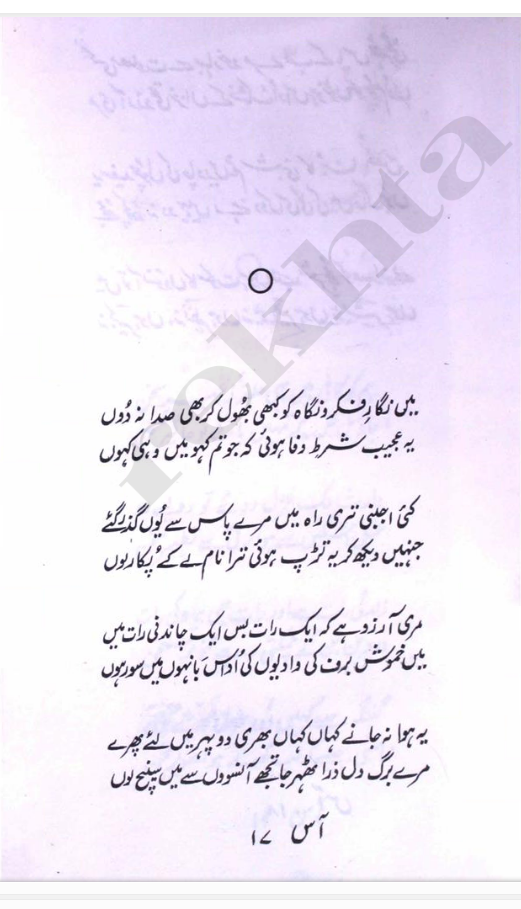 میں نگارِ فکر و نگاہ کو کبھی بھول کر بھی صدا نہ دُوں
یہ عجیب شرط وفا ہوئی کہ جو تم کہو میں وہی کہوں
کئی اجنبی تری راہ میں مرے پاس سے یُوں گذر گئے
جنہیں دیکھ کر یہ تڑپ ہوئی ترا نام لے کے پُکار لوں
مری آرزو ہے کہ ایک رات بس ایک چاندنی رات میں
میں خموش برف کی وادیوں کی اُداس بانہوں میں سو رہوں
یہ ہوا نہ جانے کہاں کہاں بھری دوپہر میں لئے پھرے
مرے برگ دل ذرا ٹھہر جا تجھے آنسووں سے میں سینچ لوں
آس ۱۷
rekhta